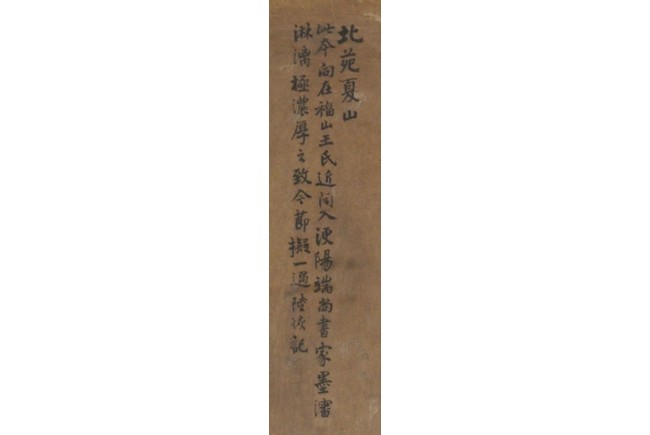 北苑夏山
此本向在福山王氏近間入浭陽端尚書家墨瀋
淋漓極濃厚之致今節擬一過陸恢記